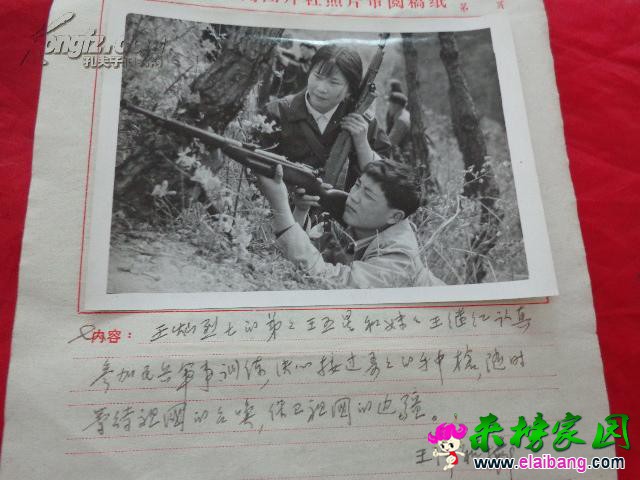 Kongfz.com
孔夫子旧书网
图片社照片审阅稿纸 第 页
内容：王灿烈士的弟弟王五星和妹妹王继红认真
参加民兵军事训练，决心接过哥哥的手中枪，随时
等待祖国的召唤，保卫祖国的边疆。
王
来榜家园
www.elaibang.com